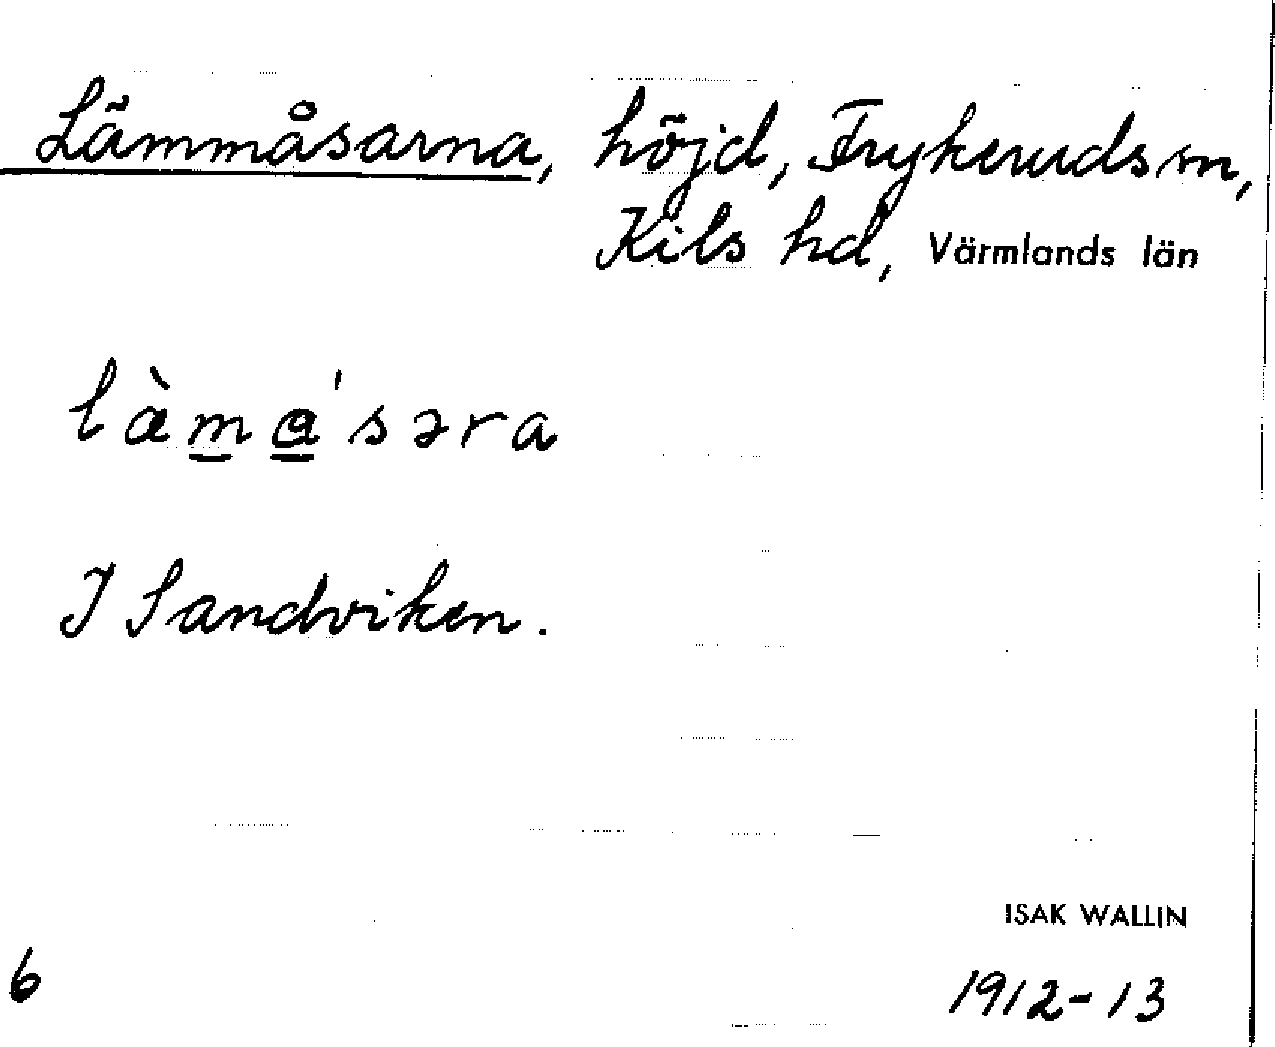 Lämmåsarna, höjd, Frykeruds sn,
Kils hd, Värmlands län
læ̀ma̲'səra
I Sandviken.
ISAK WALLIN
6
1912-13